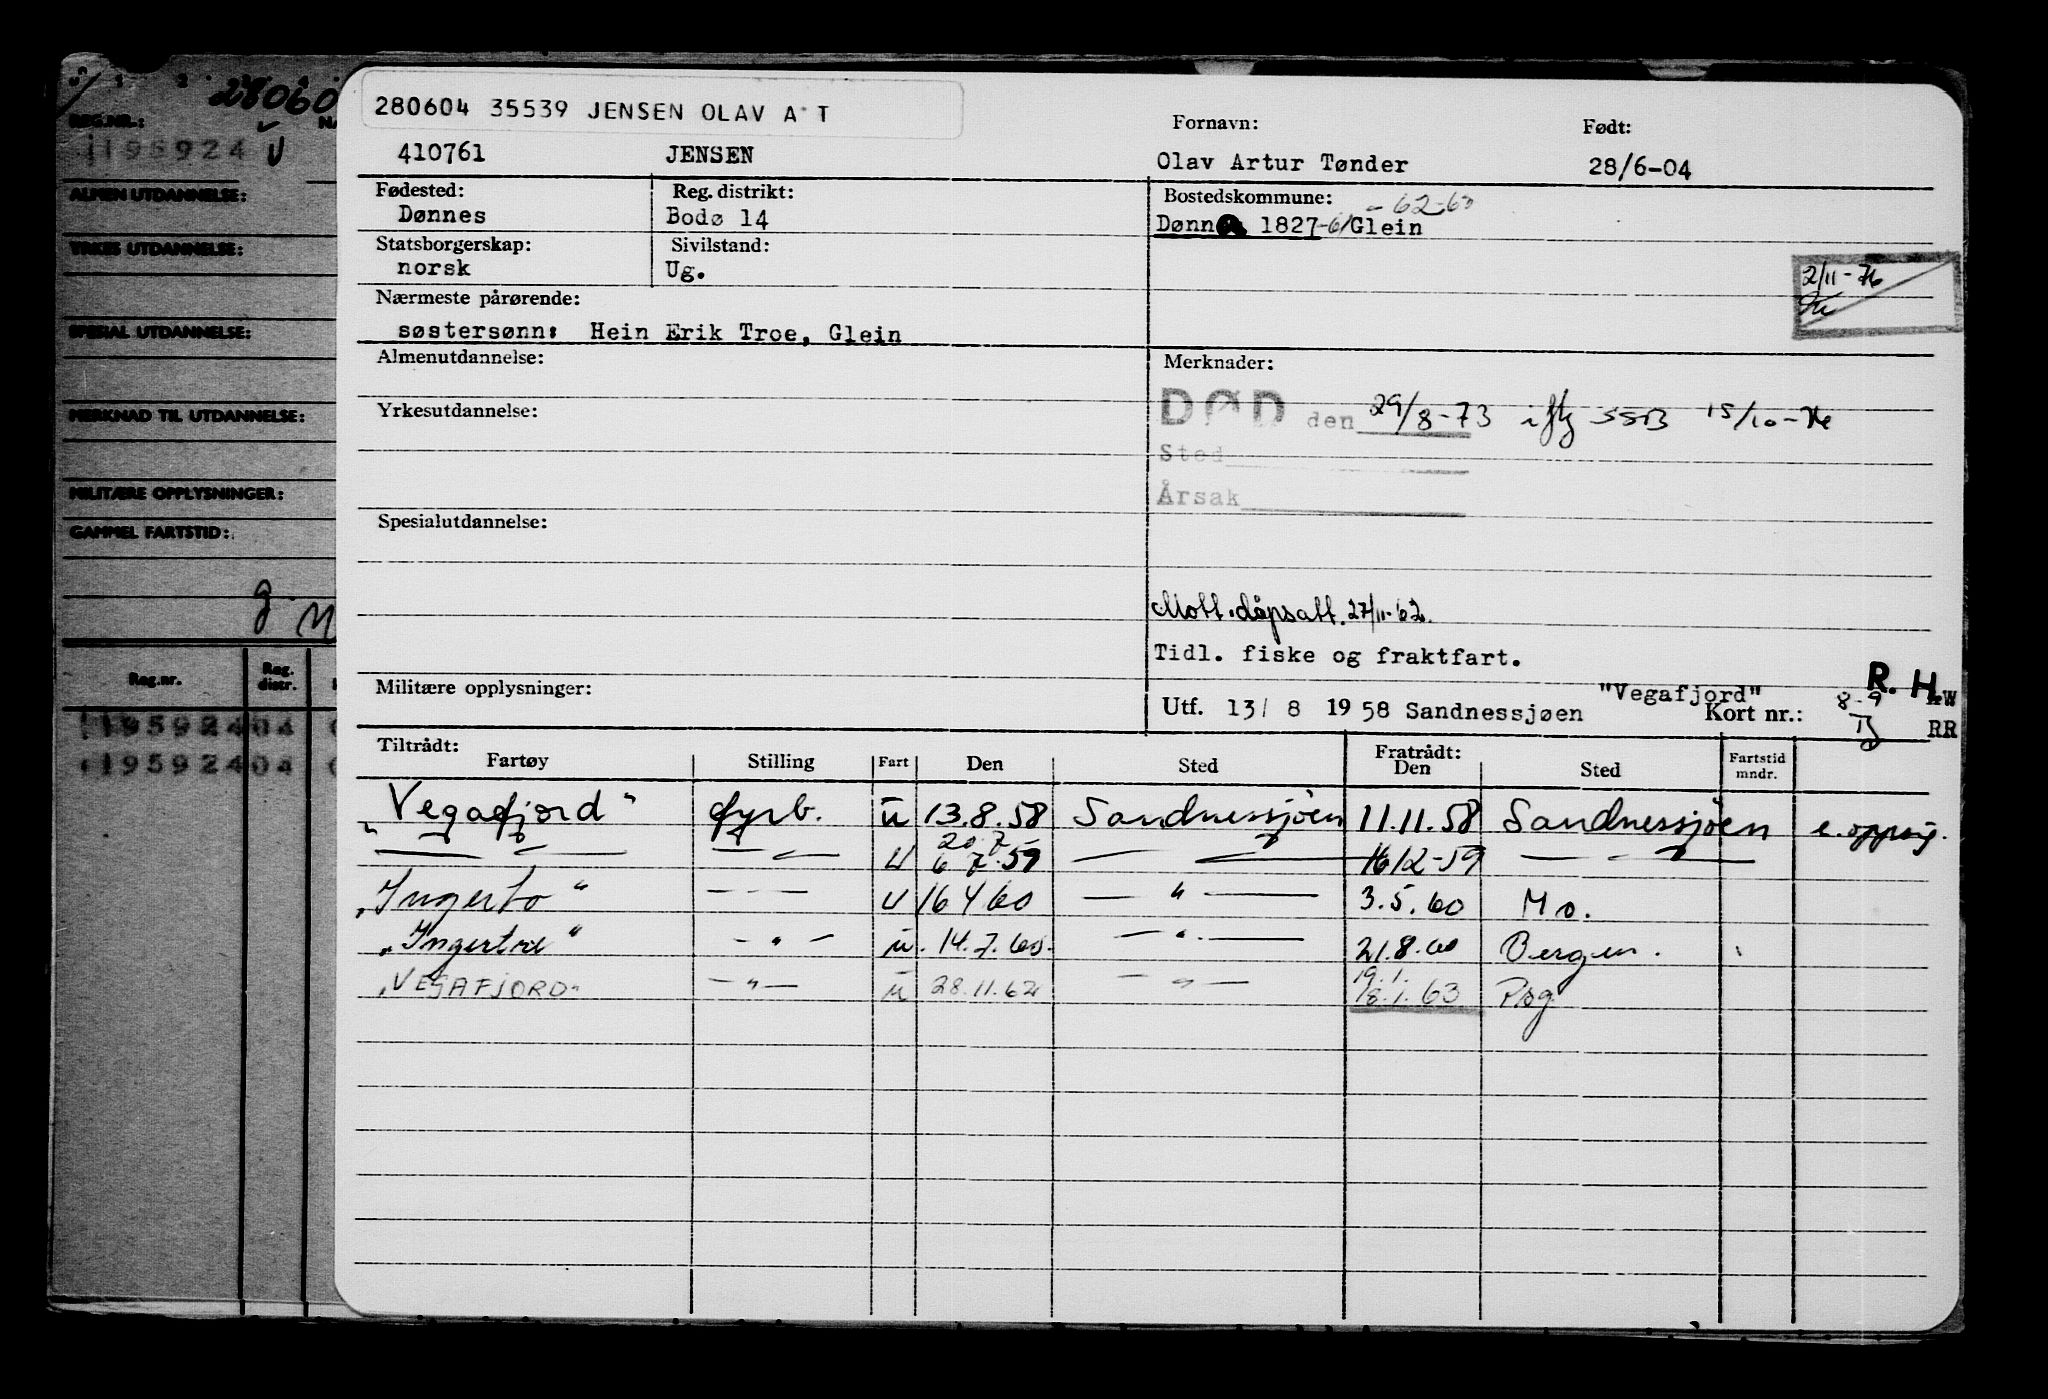 28060
REG.NR.:
195924 U
ALMEN UTDANNELSE:
YRKES UTDANNELSE:
SPESIAL UTDANNELSE:
MERKNAD TIL UTDANNELSE:
MILITÆRE OPPLYSNINGER:
GAMMEL FARTSTID:
g.
Reg.nr. Reg. distr.
19592404
19592404
280604 35539 JENSEN OLAV A T
Fornavn: Født:
410761 JENSEN Olav Artur Tønder 28/6-04
Fødested: Reg. distrikt: Bostedskommune: - 62-63
Dønnes Bodø 14 Dønn 1827-61 Glein
Statsborgerskap: Sivilstand:
norsk Ug.
2/11-76
Nærmeste pårørende:
søstersønn: Hein Erik Troe, Glein
Almenutdannelse: Merknader:
Yrkesutdannelse: DØD den 29/8-73 iflg SSB 15/10-76
Sted
Årsak
Spesialutdannelse:
Mott. dåpsatt. 27/11-62.
Tidl. fiske og fraktfart.
R. H.
Militære opplysninger: "Vegafjord" 8-9
Utf. 13/ 8 19 58 Sandnessjøen Kort nr.: RR
Tiltrådt: Fratrådt:
Fartøy Stilling Fart Den Sted Den Sted Fartstid mndr.
"Vegafjord" fyrb. u 13.8.58 Sandnessjøen 11.11.58 Sandnessjøen e. oppsig.
— " — — " — u 20.7 6 7.59 — " — 16 12-59 — " —
"Ingerto" — " — u 16 4 60 — " — 3.5.60 Mo.
"Ingertre" — " — u. 14.7.60. — " — 21.8.60 Bergen.
"VEGAFJORD" — " — u 28.11.62 — " — 19.1. 18.1.63 Psg